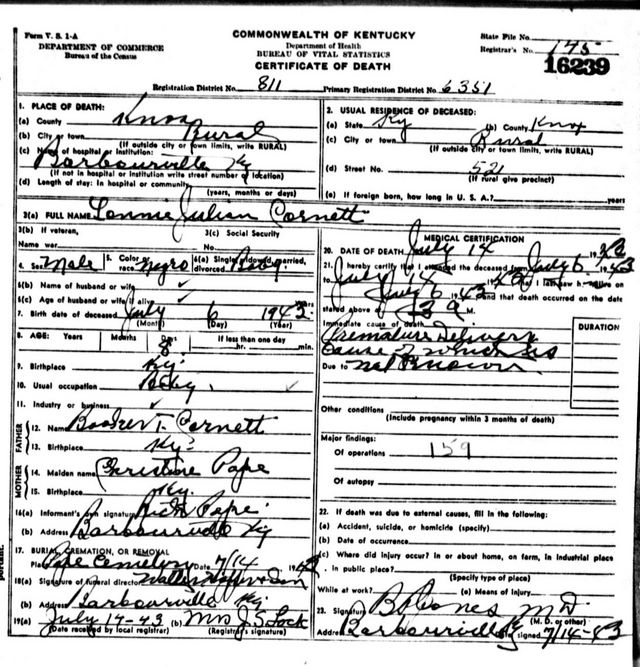 Form V. S. 1-A
DEPARTMENT OF COMMERCE
Bureau of the Census
COMMONWEALTH OF KENTUCKY
Department of Health
BUREAU OF VITAL STATISTICS
CERTIFICATE OF DEATH
State File No.
Registrar's No. 145
16239
Registration District No. 811 Primary Registration District No. 6351
1. PLACE OF DEATH:
(a) County Knox
(b) City or town Rural
(If outside city or town limits, write RURAL)
(c) Name of hospital or institution:
Barbourville Ky
(If not in hospital or institution write street number or location)
(d) Length of stay: In hospital or community
(years, months or days)
2. USUAL RESIDENCE OF DECEASED:
(a) State Ky (b) County Knox
(c) City or town Rural
(If outside city or town limits, write RURAL)
(d) Street No. 521
(If rural give precinct)
(e) If foreign born, how long in U. S. A.? years
3(a) FULL NAME Lonnie Julian Cornett
3(b) If veteran,
Name war
3(c) Social Security
No.
4. Sex Male 5. Color or race Negro 6(a) Single, widowed, married, divorced Baby
6(b) Name of husband or wife
6(c) Age of husband or wife if alive years
7. Birth date of deceased July 6 1942
(Month) (Day) (Year)
8. AGE: Years Months Days If less than one day
8 hr. min.
9. Birthplace Ky.
10. Usual occupation Baby
11. Industry or business
FATHER
12. Name Booker T. Cornett
13. Birthplace Ky.
MOTHER
14. Maiden name Christine Pope
15. Birthplace Ky.
16(a) Informant's own signature Rich Pope
(b) Address Barbourville Ky
17. BURIAL, CREMATION, OR REMOVAL
Place Pope Cemetery 7/14 194
18(a) Signature of funeral director
(b) Address Barbourville Ky
19(a) July 14-43 (b) Mrs J. S. Lock
(Date received by local registrar) (Registrar's signature)
MEDICAL CERTIFICATION
20. DATE OF DEATH July 14
21. I hereby certify that I attended the deceased from July 6 1943
July 14 that I last saw h alive on
July 6 1943 and that death occurred on the date
stated above at M.
Immediate cause of death
Premature Delivery
Cause of which is
Due to not known
DURATION
Other conditions
(Include pregnancy within 3 months of death)
Major findings:
Of operations 159
Of autopsy
22. If death was due to external causes, fill in the following:
(a) Accident, suicide, or homicide (specify)
(b) Date of occurrence
(c) Where did injury occur? In or about home, on farm, in industrial place
, in public place?
(Specify type of place)
While at work? (e) Means of injury
23. Signature B P Jones M D
(M. D. or other)
Address Barbourville Date signed 7/14-43